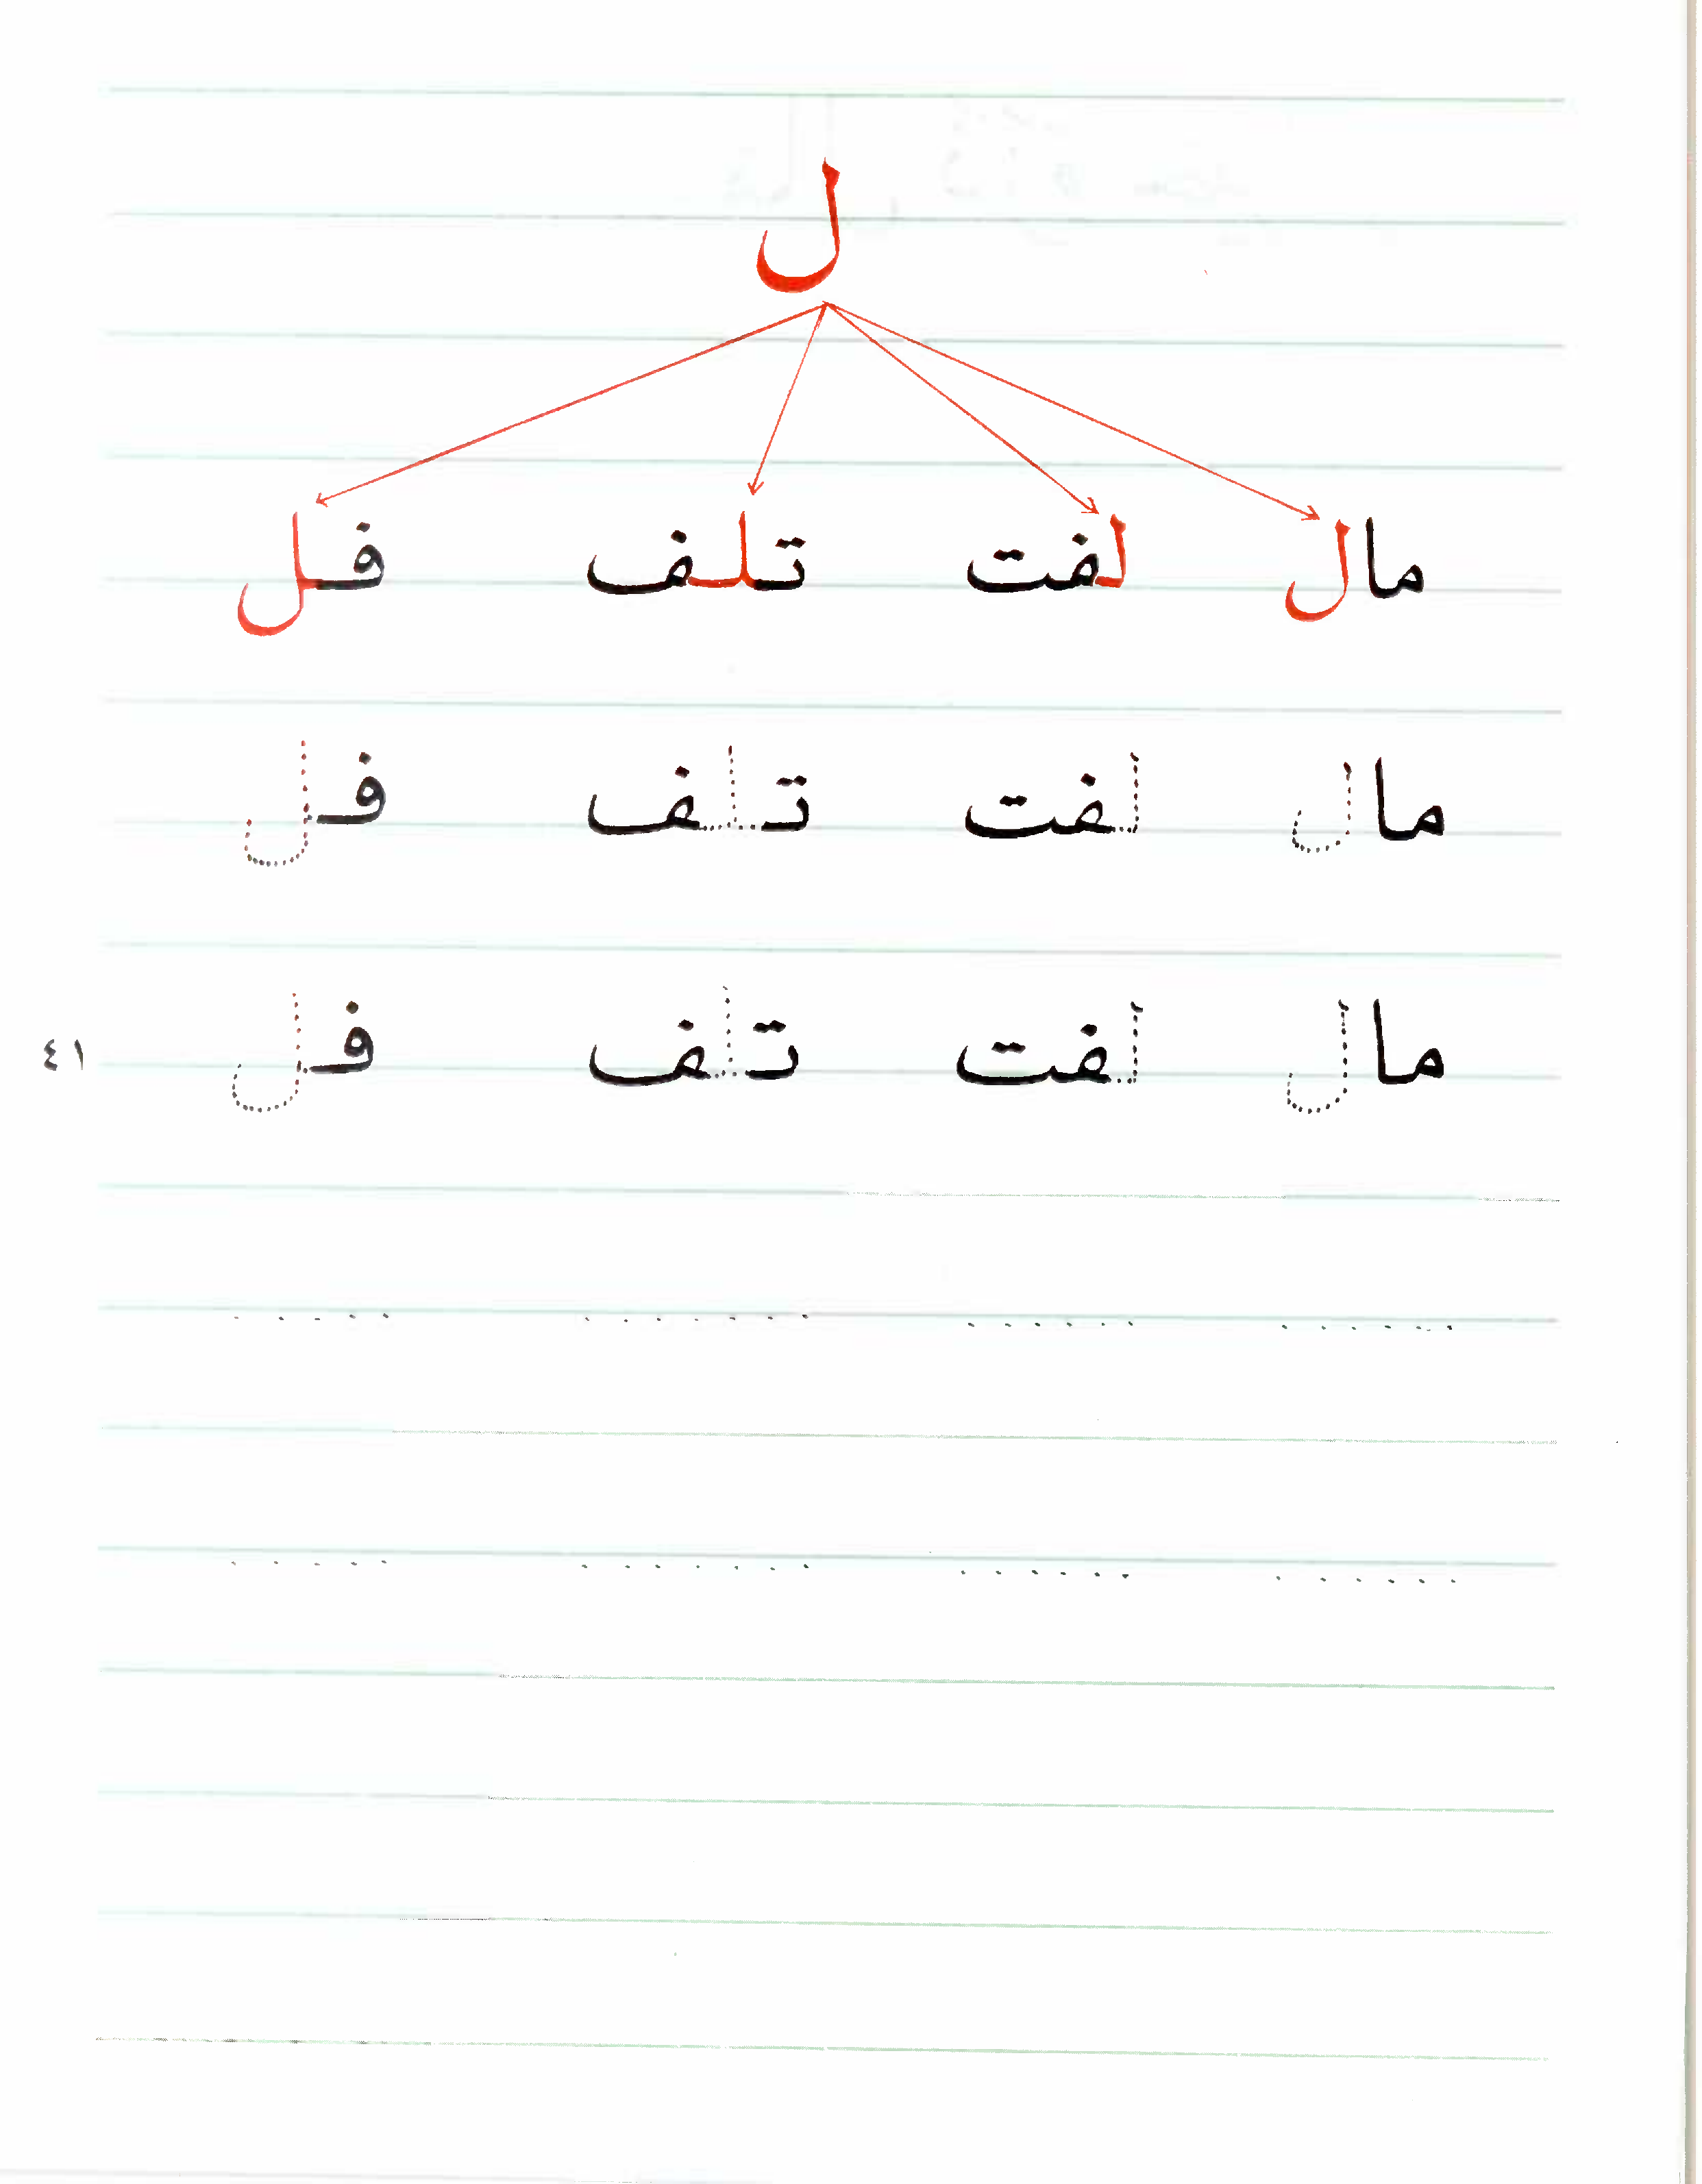 ل
مال لفت تلف فل
مال لفت تلف فل
مال لفت تلف فل
٤١